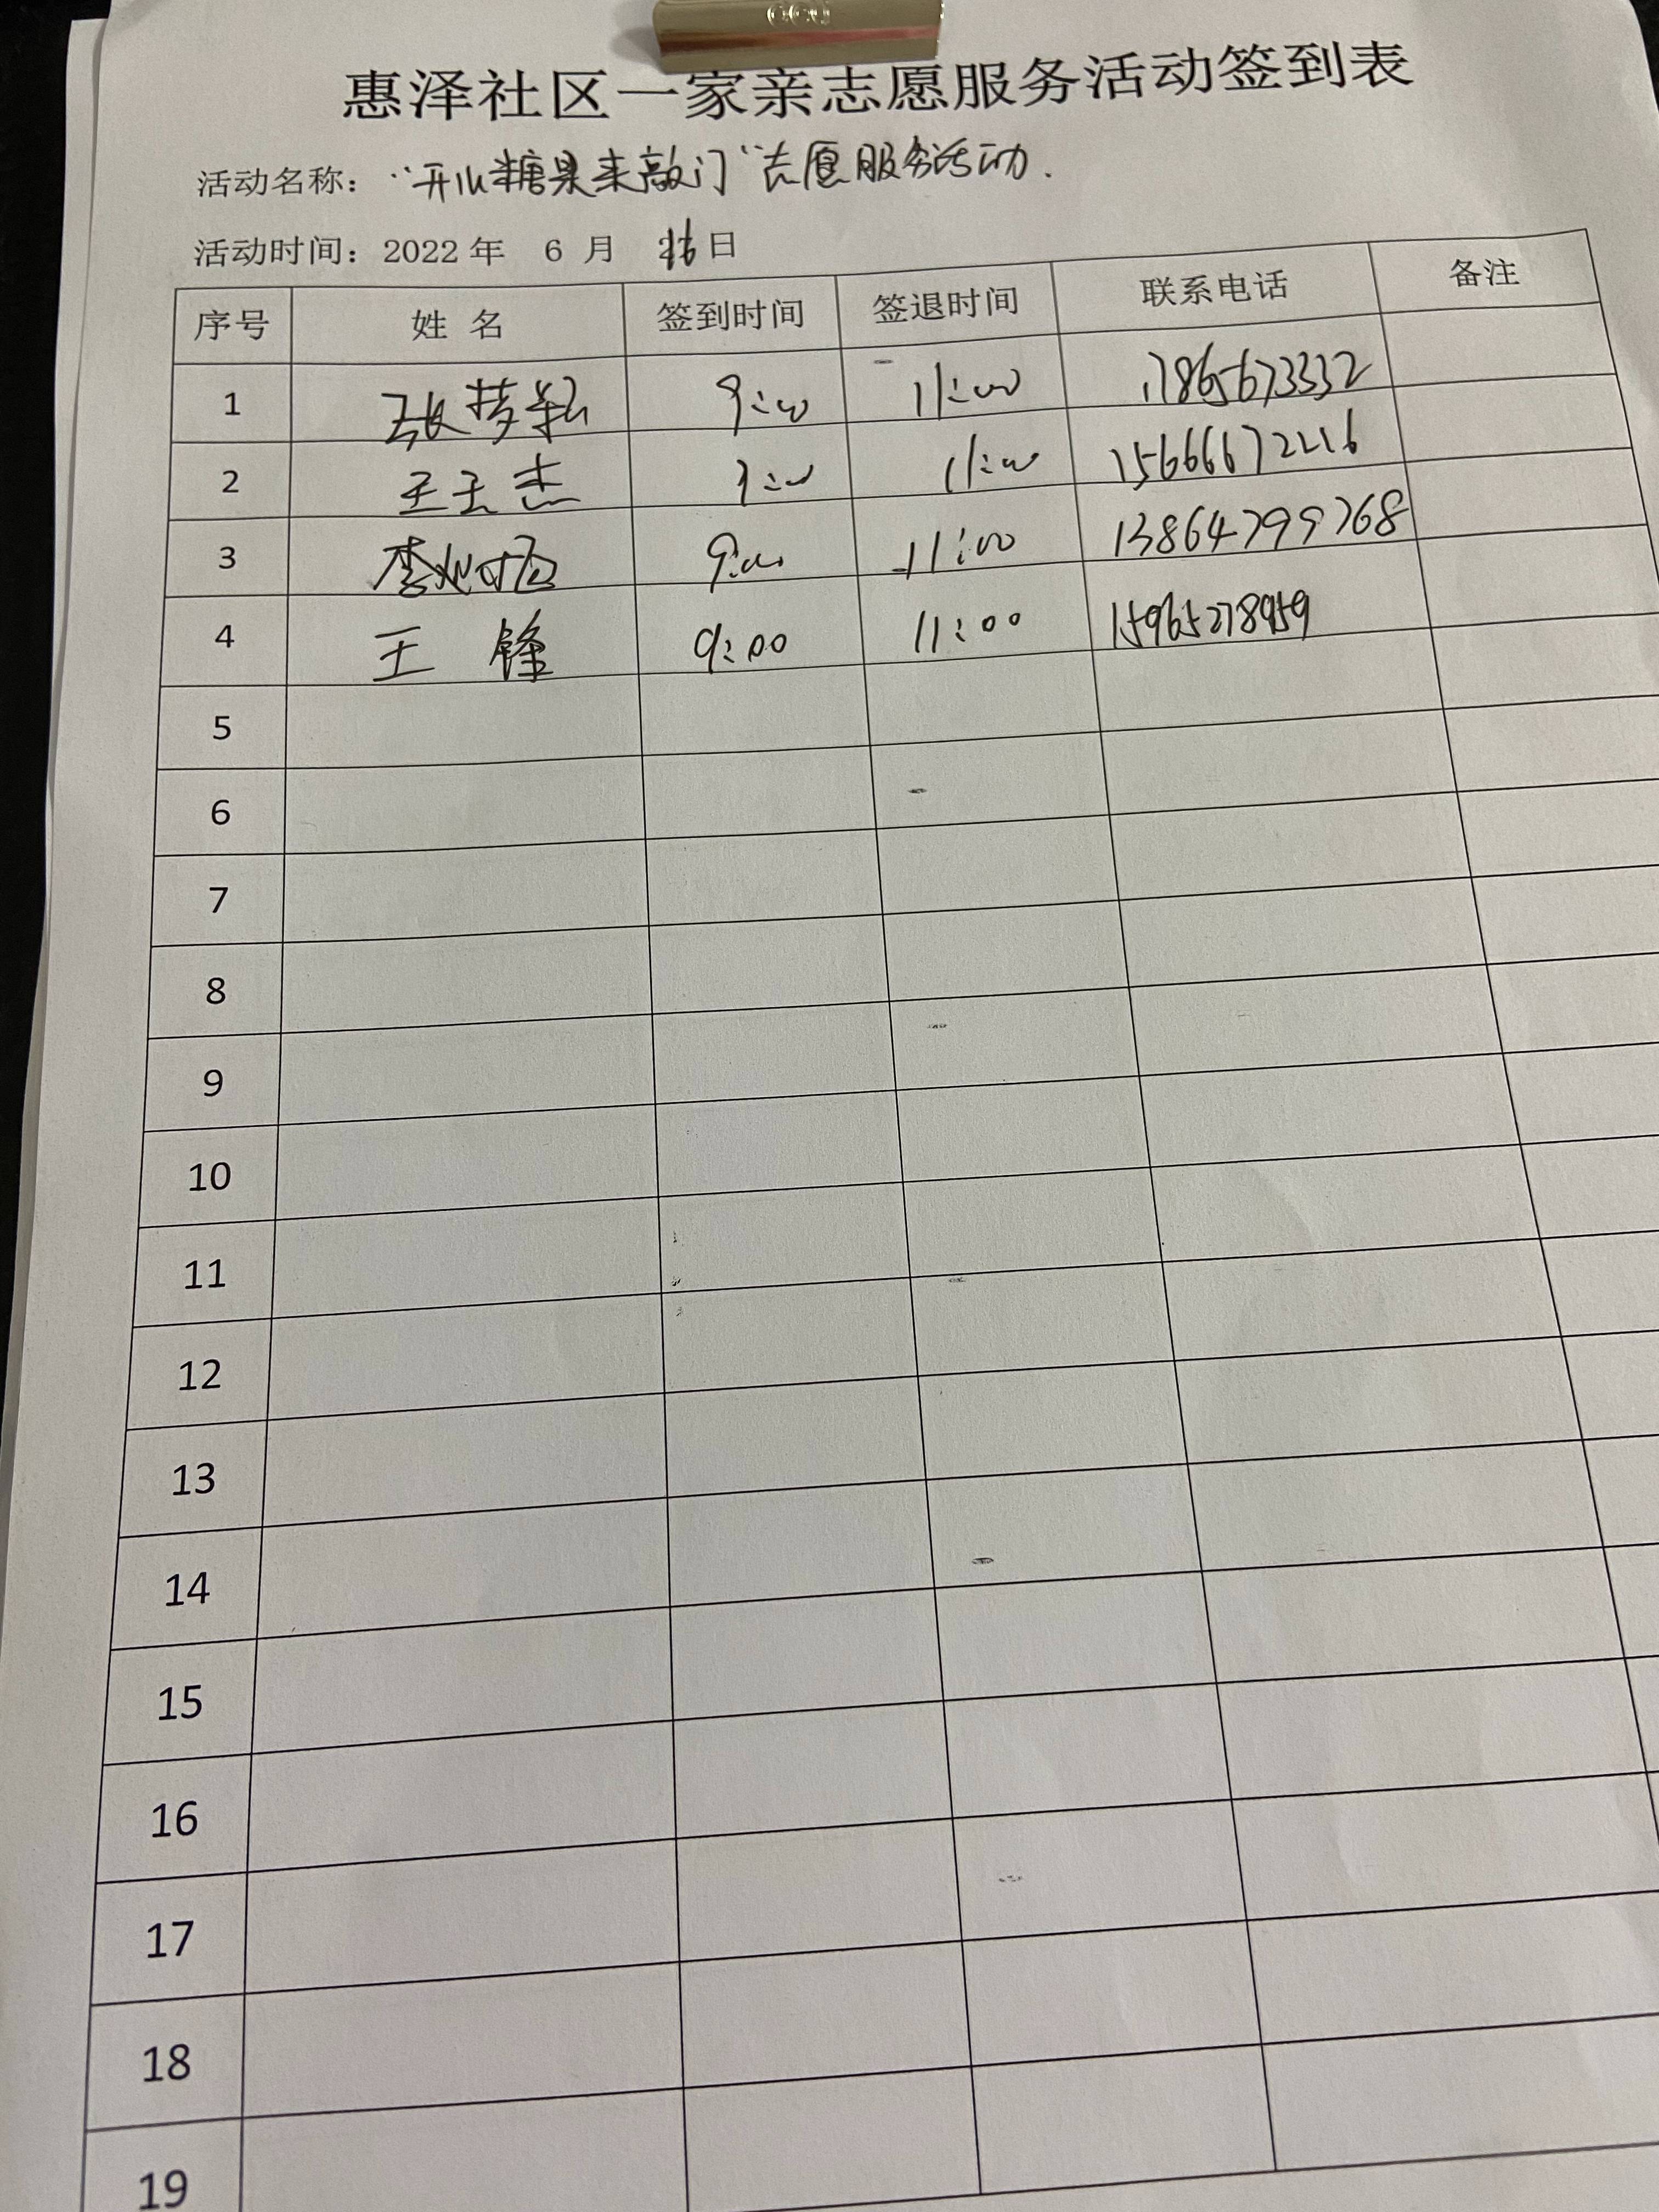 惠泽社区一家亲志愿服务活动签到表
活动名称：“开心糖果来敲门”志愿服务活动.
活动时间：2022年 6月 日
序号 姓 名 签到时间 签退时间 联系电话 备注
1 张梦 9:00 11:00 17865673332
2 王玉杰 9:00 11:00 15666672216
3 李 9:00 11:00 13864799768
4 王 锋 9:00 11:00 15965278959
5
6
7
8
9
10
11
12
13
14
15
16
17
18
19